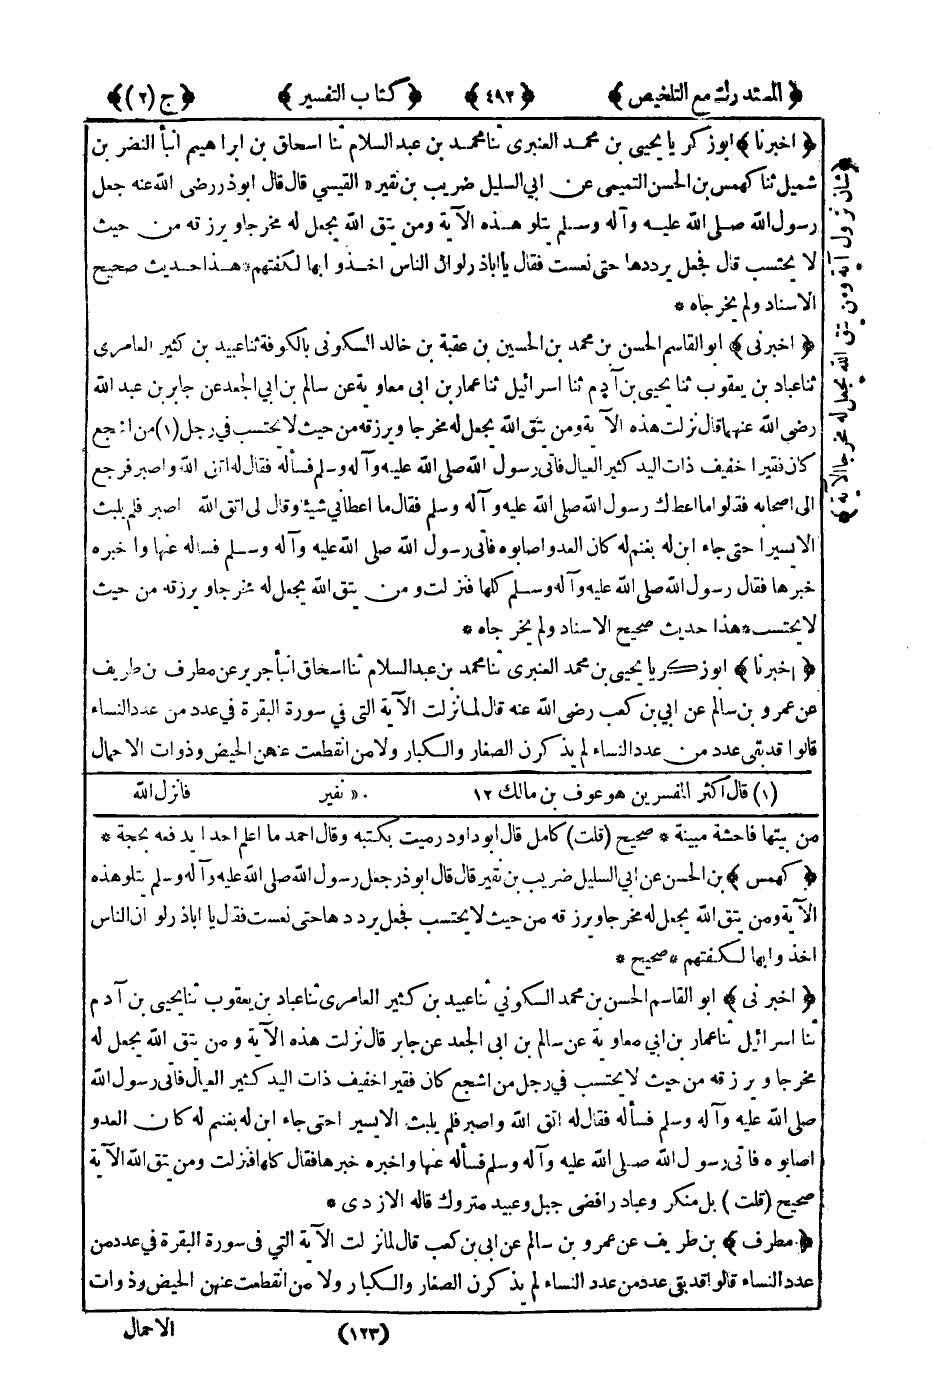 ﴿ المستدرك مع التلخيص ﴾ ﴿ ٤٩٢ ﴾ ﴿ كتاب التفسير ﴾ ﴿ ج (٢) ﴾
﴿ اخبرنا ﴾ ابو زكريا يحيى بن محمد العنبرى ثنا محمد بن عبد السلام ثنا اسحاق بن ابراهيم انبأ النضر بن
شميل ثنا كهمس بن الحسن التميمى عن ابي السليل ضريب بن نقير «القيسي قال قال ابوذر رضى الله عنه جعل
رسول الله صلى الله عليه وآله وسلم يتلو هذه الآية ومن يتق الله يجعل له مخرجا ويرزقه من حيث
لا يحتسب قال فجعل يرددها حتى نعست فقال يا اباذر لو ان الناس اخذوا بها لكفتهم * هذا حديث صحيح
الاسناد ولم يخرجاه *
﴿ اخبرنى ﴾ ابو القاسم الحسن بن محمد بن الحسين بن عقبة بن خالد السكونى بالكوفة ثنا عبيد بن كثير العامرى
ثنا عباد بن يعقوب ثنا يحيى بن آدم ثنا اسرائيل ثنا عمار بن ابى معاوية عن سالم بن ابي الجعد عن جابر بن عبد الله
رضى الله عنهما قال نزلت هذه الآية ومن يتق الله يجعل له مخرجا ويرزقه من حيث لا يحتسب في رجل (١) من اشجع
كان فقيرا خفيف ذات اليد كثير العيال فاتى رسول الله صلى الله عليه وآله وسلم فسأله فقال له اتق الله واصبر فرجع
الى اصحابه فقالوا ما اعطاك رسول الله صلى الله عليه وآله وسلم فقال ما اعطاني شيئا وقال لى اتق الله اصبر فلم يلبث
الا يسيرا حتى جاء ابن له بغنم له كان العدو اصابوه فاتى رسول الله صلى الله عليه وآله وسلم فساله عنها واخبره
خبرها فقال رسول الله صلى الله عليه وآله وسلم كلها فنزلت ومن يتق الله يجعل له مخرجا ويرزقه من حيث
لا يحتسب * هذا حديث صحيح الاسناد ولم يخرجاه *
﴿ اخبرنا ﴾ ابو زكريا يحيى بن محمد العنبرى ثنا محمد بن عبد السلام ثنا اسحاق انبأ جرير عن مطرف بن طريف
عن عمرو بن سالم عن ابي بن كعب رضى الله عنه قال لما نزلت الآية التى في سورة البقرة في عدد من عدد النساء
قالوا قد بقى عدد من عدد النساء لم يذكرن الصغار والكبار ولا من انقطعت عنهن الحيض وذوات الاحمال
(١) قال اكثر المفسرين هو عوف بن مالك ١٢ « نفير فانزل الله
من بيتها فاحشة مبينة * صحيح (قلت) كامل قال ابو داود رميت بكتبه وقال احمد ما اعلم احدا يدفعه بحجة *
﴿ كهمس ﴾ بن الحسن عن ابي السليل ضريب بن نقير قال قال ابوذر جعل رسول الله صلى الله عليه وآله وسلم يتلو هذه
الآية ومن يتق الله يجعل له مخرجا ويرزقه من حيث لا يحتسب فجعل يرددها حتى نعست فقال يا اباذر لو ان الناس
اخذوا بها لكفتهم * صحيح *
﴿ اخبرنى ﴾ ابو القاسم الحسن بن محمد السكوني ثنا عبيد بن كثير العامرى ثنا عباد بن يعقوب ثنا يحيى بن آدم
ثنا اسرائيل ثنا عمار بن ابي معاوية عن سالم بن ابى الجعد عن جابر قال نزلت هذه الآية ومن يتق الله يجعل له
مخرجا ويرزقه من حيث لا يحتسب في رجل من اشجع كان فقيرا خفيف ذات اليد كثير العيال فاتى رسول الله
صلى الله عليه وآله وسلم فسأله فقال له اتق الله واصبر فلم يلبث الا يسيرا حتى جاء ابن له بغنم له كان العدو
اصابوه فاتى رسول الله صلى الله عليه وآله وسلم فسأله عنها واخبره خبرها فقال كلها فنزلت ومن يتق الله الآية
صحيح (قلت) بل منكر وعباد رافضى جبل وعبيد متروك قاله الازدى *
﴿ مطرف ﴾ بن طريف عن عمرو بن سالم عن ابى بن كعب قال لما نزلت الآية التي فى سورة البقرة في عدد من
عدد النساء قالوا قد بقى عدد من عدد النساء لم يذكرن الصغار والكبار ولا من انقطعت عنهن الحيض وذوات
الاحمال
(١٢٣)
﴿ شان نزول آية ومن يتق الله يجعل له مخرجا الآية ﴾